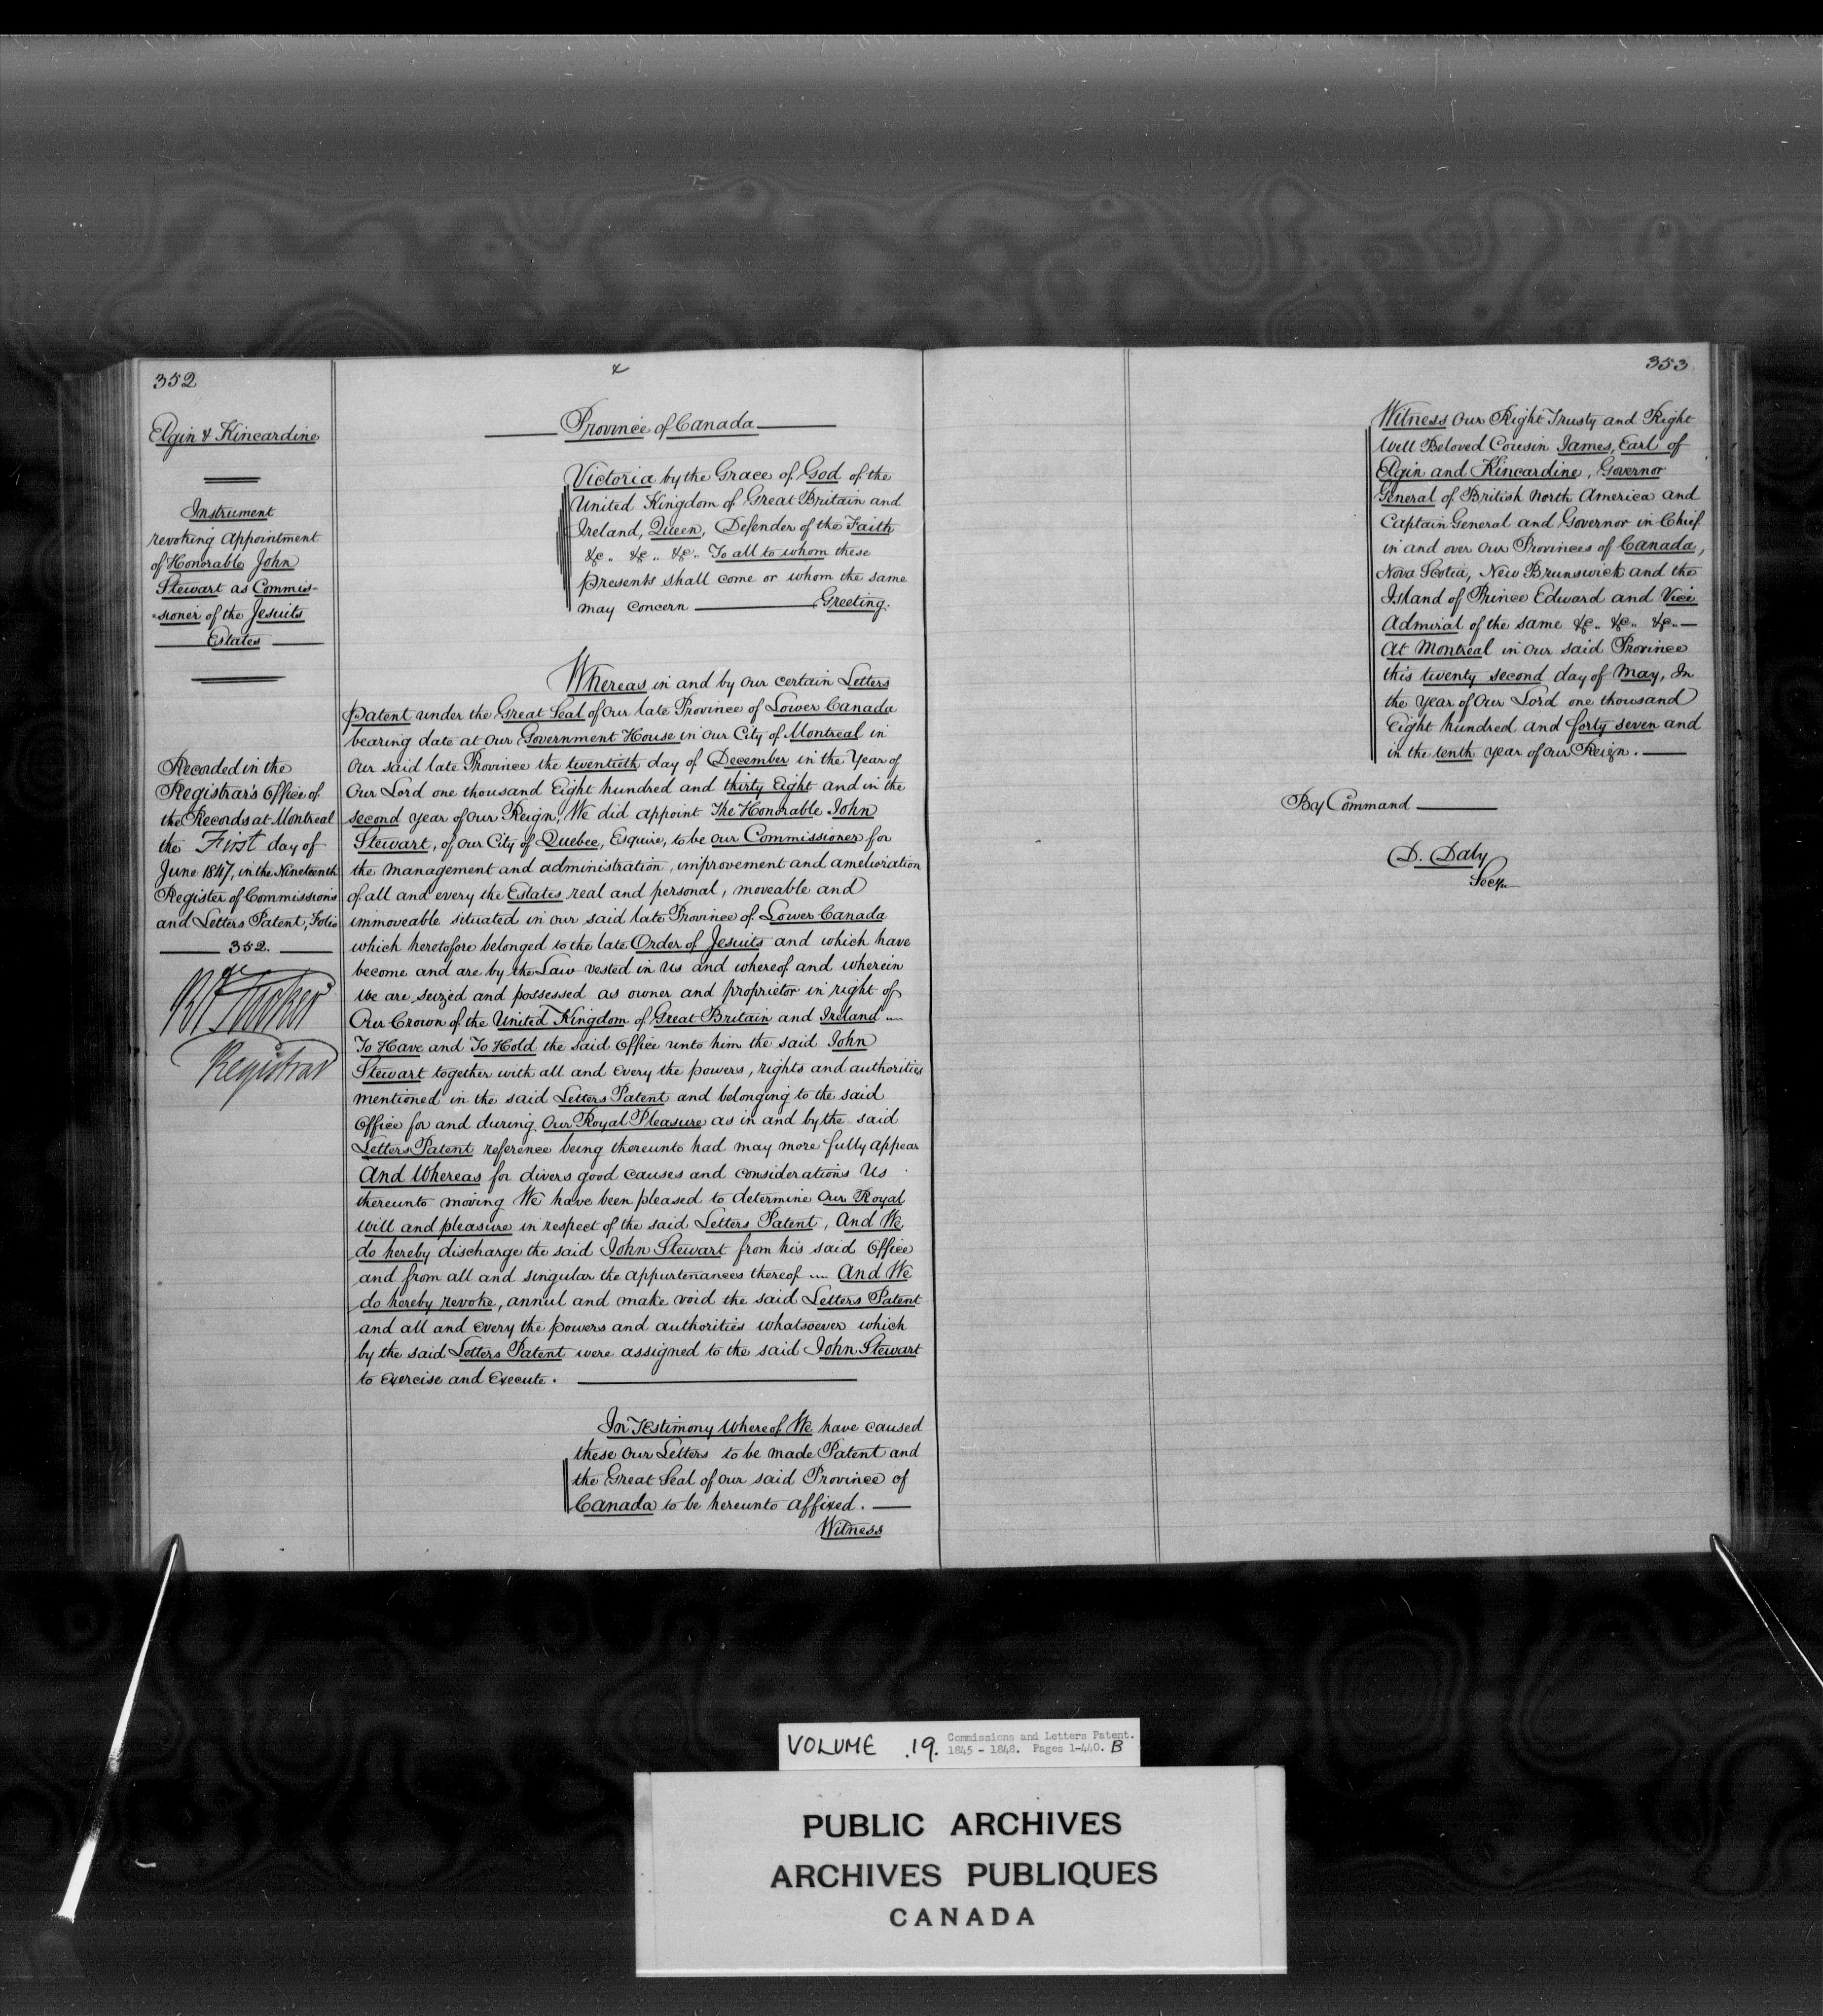 352
Elgin & Kincardine
Instrument
revoking Appointment
of Honorable John
Stewart as Commis-
-sioner of the Jesuits
Estates
Recorded in the
Registrar's Office of
the Records at Montreal
the First day of
June 1847, in the Nineteenth
Register of Commissions
and Letters Patent, Folio
352.
Registrar
Province of Canada
Victoria by the Grace of God of the
United Kingdom of Great Britain and
Ireland, Queen, Defender of the Faith
&c.. &c.. &c.. To all to whom these
presents shall come or whom the same
may concern Greeting.
Whereas in and by our certain Letters
Patent under the Great Seal of our late Province of Lower Canada
bearing date at our Government House in our City of Montreal in
our said late Province the twentieth day of December in the Year of
Our Lord one thousand Eight hundred and thirty Eight and in the
second year of our Reign, We did appoint The Honorable John
Stewart, of our City of Quebec, Esquire, to be our Commissioner for
the management and administration, improvement and amelioration
of all and every the Estates real and personal, moveable and
immoveable situated in our said late Province of Lower Canada
which heretofore belonged to the late Order of Jesuits and which have
become and are by the Law vested in Us and whereof and wherein
we are seized and possessed as owner and proprietor in right of
Our Crown of the United Kingdom of Great Britain and Ireland
To Have and To Hold the said office unto him the said John
Stewart together with all and every the powers, rights and authorities
mentioned in the said Letters Patent and belonging to the said
Office for and during Our Royal Pleasure as in and by the said
Letters Patent reference being thereunto had may more fully appear
And Whereas for divers good causes and considerations Us
thereunto moving We have been pleased to determine Our Royal
will and pleasure in respect of the said Letters Patent, And We
do hereby discharge the said John Stewart from his said Office
and from all and singular the appurtenances thereof And We
do hereby revoke, annul and make void the said Letters Patent
and all and every the powers and authorities whatsoever which
by the said Letters Patent were assigned to the said John Stewart
to exercise and execute.
In Testimony Whereof We have caused
these our Letters to be made Patent and
the Great Seal of our said Province of
Canada to be hereunto affixed.
Witness
353
Witness Our Right Trusty and Right
Well Beloved Cousin James, Earl of
Elgin and Kincardine, Governor
General of British North America and
Captain General and Governor in Chief
in and over our Provinces of Canada,
Nova Scotia, New Brunswick and the
Island of Prince Edward and Vice
Admiral of the same &c.. &c.. &c..
At Montreal in our said Province
this twenty second day of May, In
the year of Our Lord one thousand
Eight hundred and forty seven and
in the tenth year of our Reign.
By Command
D. Daly
Secy
VOLUME .19. Commissions and Letters Patent.
1845 - 1848. Pages 1-440. B
PUBLIC ARCHIVES
ARCHIVES PUBLIQUES
CANADA